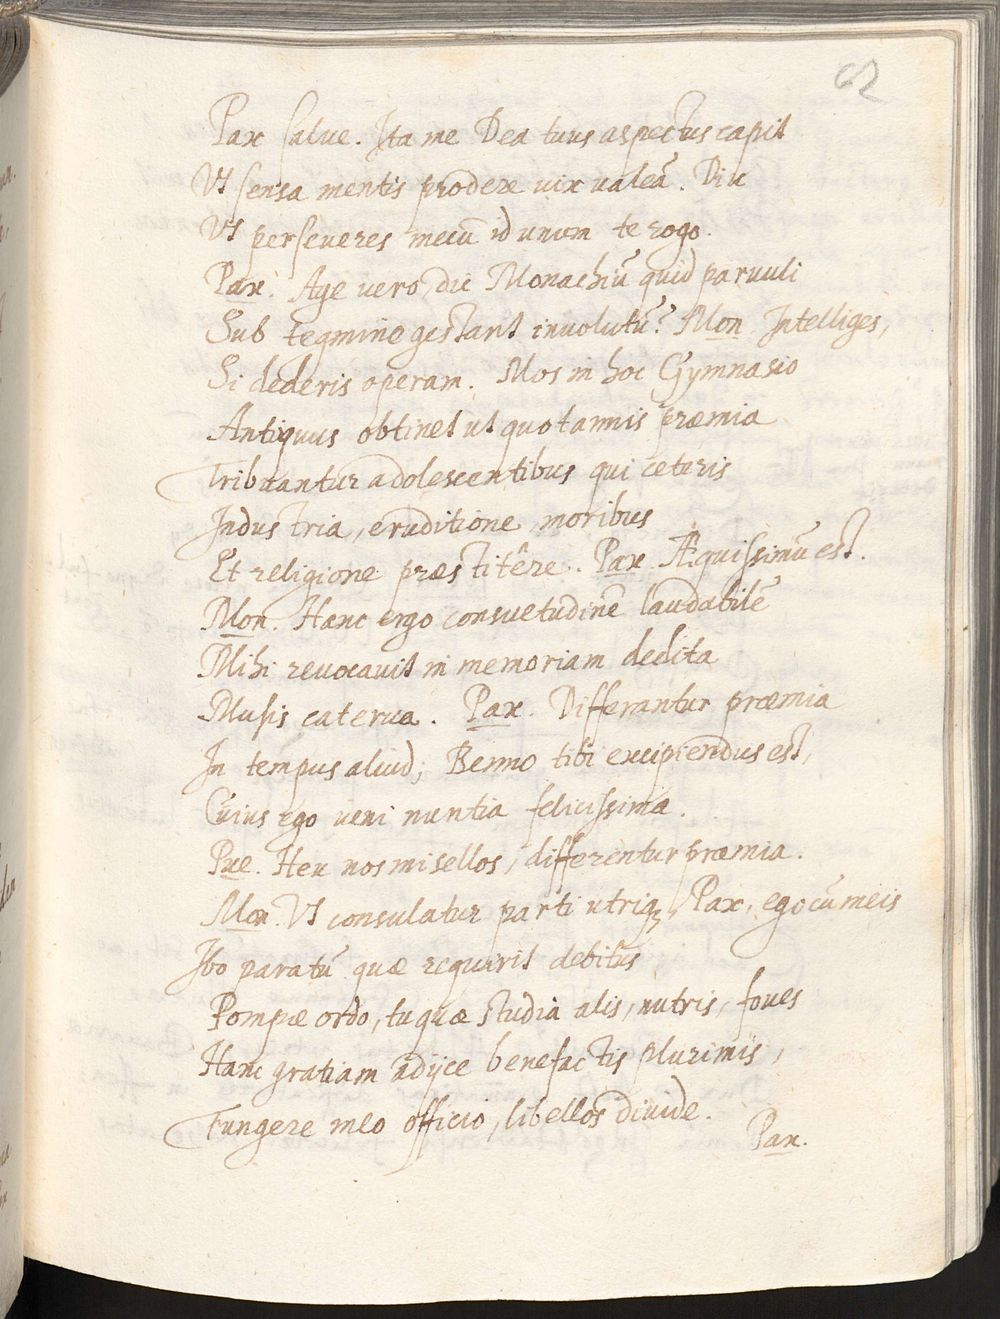 62
Pax salue. Ita me Dea tuus aspectus capit
Vt sensa mentis prodere uix ualeā. Diu
Vt perseueres mecū id unum te rogo.
Pax. Age uero, dic Monachiū quid paruuli
Sub tegmine gestant inuolutū? Mon. Intelliges,
Si dederis operam. Mos in hoc Gymnasio
Antiquus obtinet ut quotannis præmia
Tribuantur adolescentibus qui ceteris
Industria, eruditione, moribus
Et religione præstitêre. Pax. Æquissimū est.
Mon. Hanc ergo consuetudinē laudabilē
Mihi reuocauit in memoriam dedita
Musis caterua. Pax. Differantur præmia
In tempus aliud; Benno tibi excipiendus est,
Cuius ego ueni nuntia felicissima.
Pue. Heu nos misellos, differentur præmia.
Mon. Vt consulatur parti utriq;, Pax, ego cū meis
Ibo paratū quæ requirit debitus
Pompæ ordo, tu quæ studia alis, nutris, foues
Hanc gratiam adijce benefactis plurimis,
Fungere meo officio, libellos diuide.
Pax.